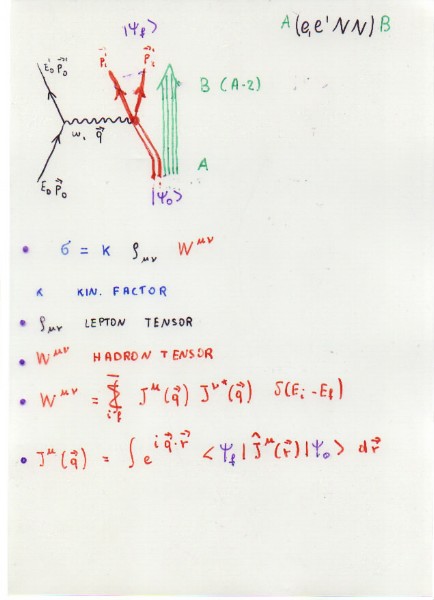 A(e,e'NN)B
|Ψf⟩
E₀' p⃗₀'
p⃗₁' p⃗₂'
B (A-2)
ω, q⃗
A
E₀ p⃗₀
|Ψ₀⟩
• σ = K ρμν W^μν
K KIN. FACTOR
• ρμν LEPTON TENSOR
• W^μν HADRON TENSOR
• W^μν = Σ̄_if J^μ(q⃗) J^ν*(q⃗) δ(Ei - Ef)
• J^μ(q⃗) = ∫ e^{i q⃗·r⃗} ⟨Ψf|Ĵ^μ(r⃗)|Ψ₀⟩ dr⃗